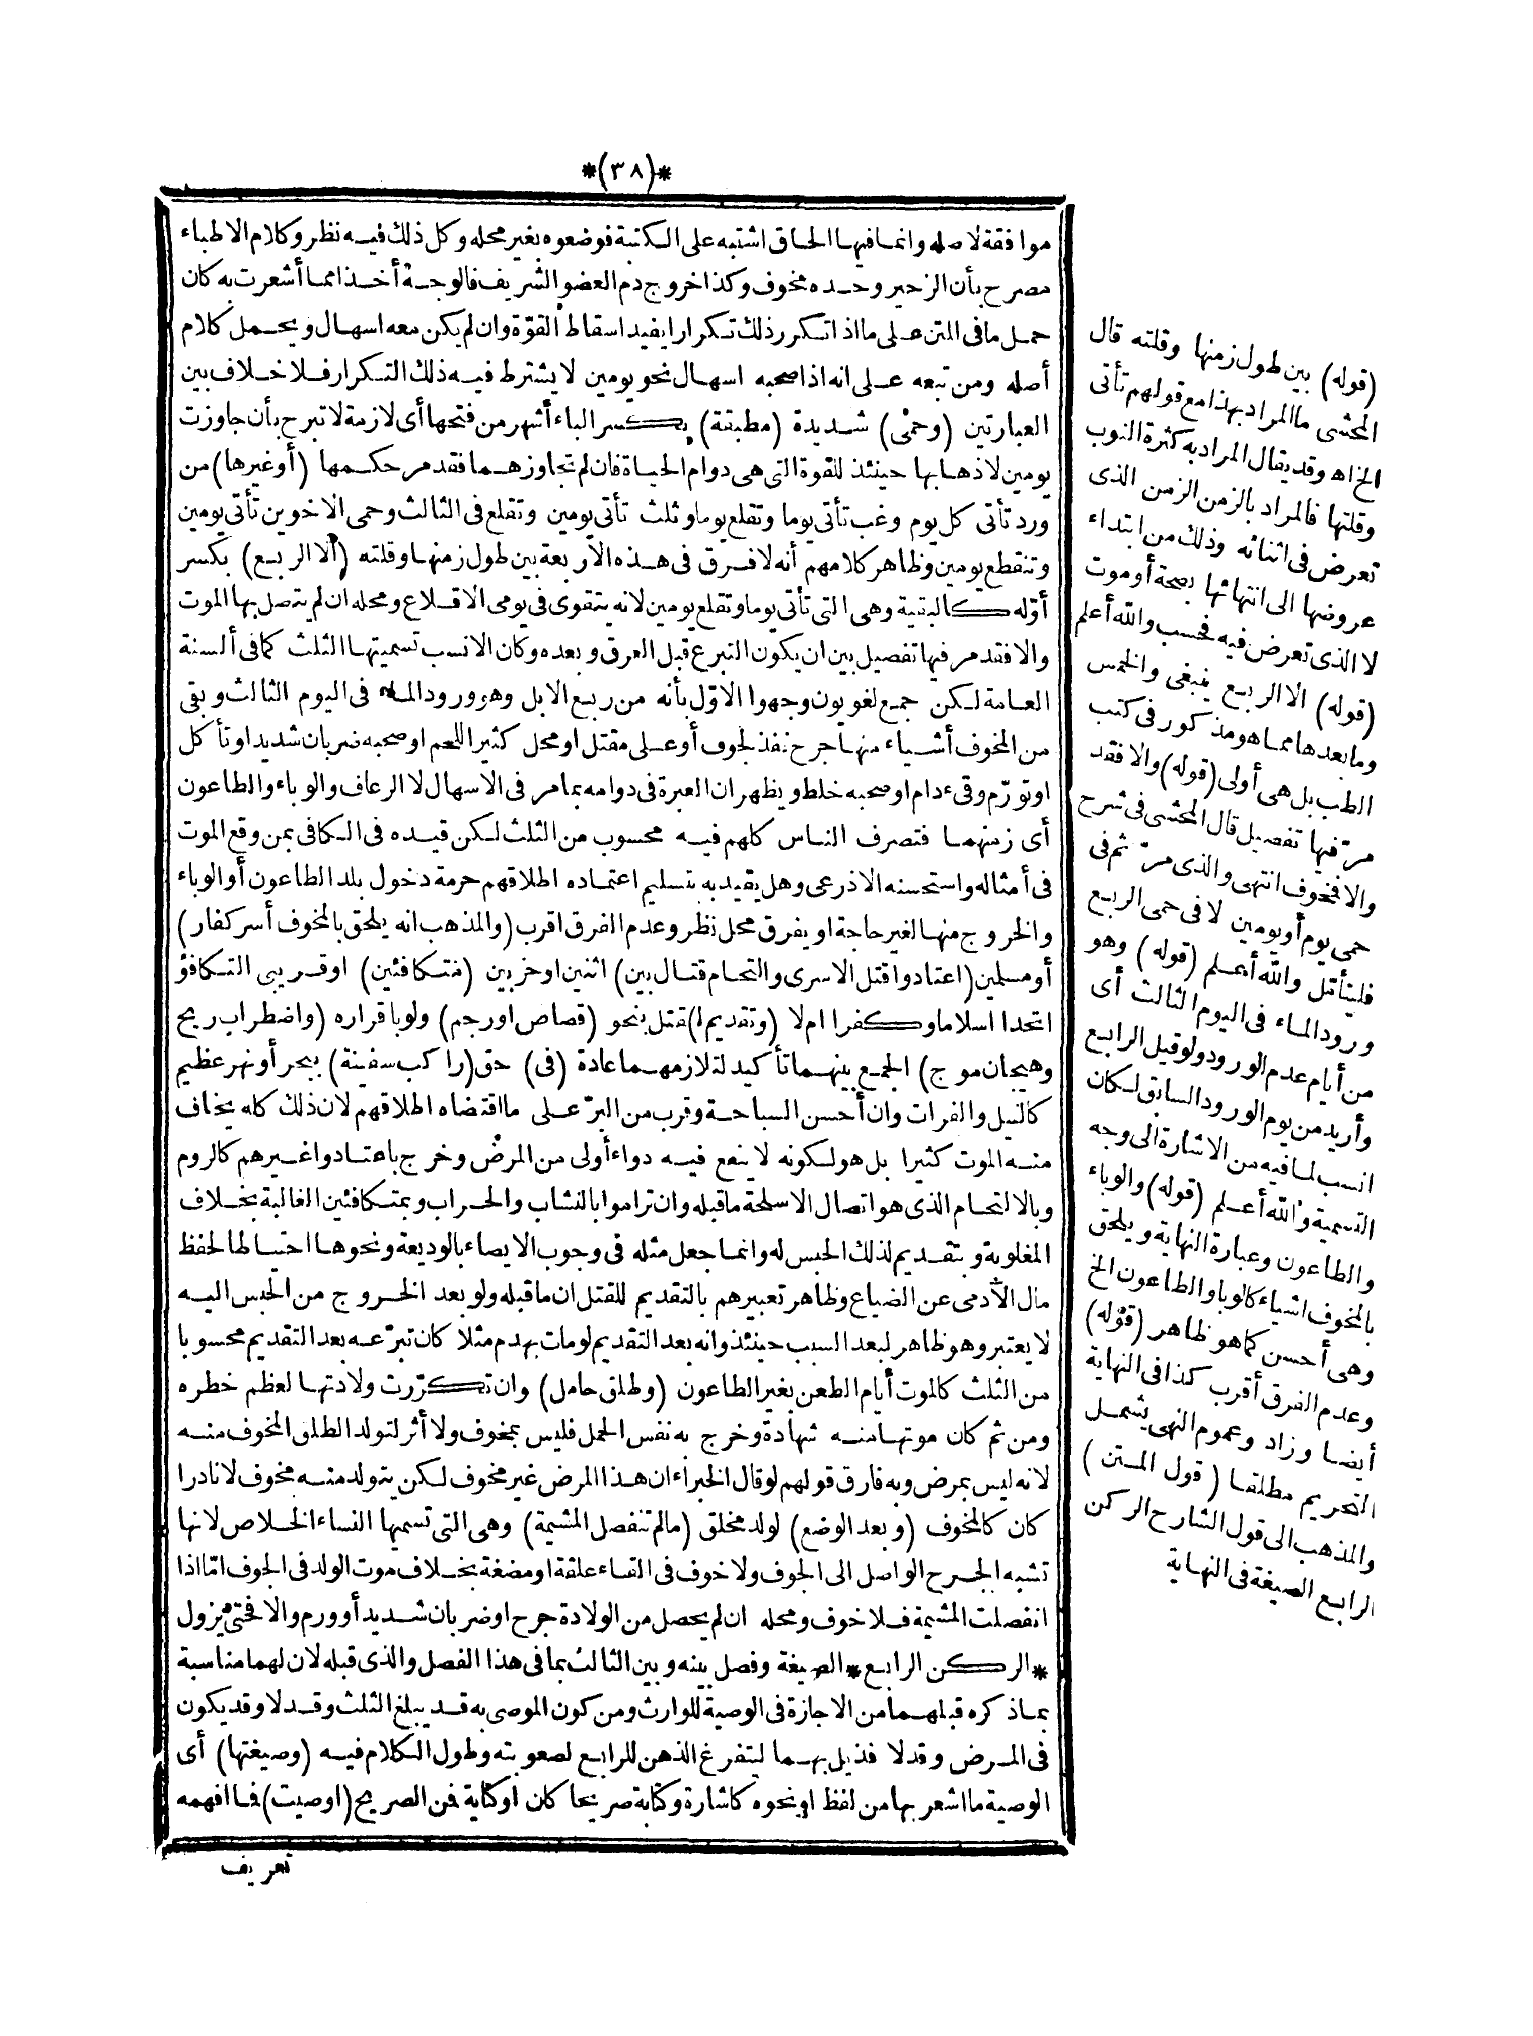 *(٣٨)*
موافقة لاصله وانما فيها الحاق اشتبه على الكتبة فوضعوه بغير محله وكل ذلك فيه نظر وكلام الاطباء
مصرح بأن الزحير وحده مخوف وكذا خروج دم العضو الشريف فالوجه أخذا مما أشعرت به كان
حمل ما فى المتن على ما اذا تكرر ذلك تكرارا يفيد اسقاط القوّة وان لم يكن معه اسهال ويحمل كلام
أصله ومن تبعه على انه اذا صحبه اسهال نحو يومين لا يشترط فيه ذلك التكرار فلا خلاف بين
العبارتين (وحمى) شديدة (مطبقة) بكسر الباء أشهر من فتحها أى لازمة لا تبرح بأن جاوزت
يومين لاذهابها حينئذ للقوة التى هى دوام الحياة فان لم تجاوزهما فقد مر حكمها (أو غيرها) من
ورد تأتى كل يوم وغب تأتى يوما وتقلع يوما وثلث تأتى يومين وتقلع فى الثالث وحمى الاخوين تأتى يومين
وتنقطع يومين وظاهر كلامهم أنه لا فرق فى هذه الأربعة بين طول زمنها وقلته (الا الربع) بكسر
أوّله كالبقية وهى التى تأتى يوما وتقلع يومين لانه يتقوى فى يومى الاقلاع ومحله ان لم يتصل بها الموت
والا فقد مر فيها تفصيل بين ان يكون التبرع قبل العرق وبعده وكان الانسب تسميتها الثلث كما فى ألسنة
العامة لكن جمع لغويون وجهوا الاوّل بأنه من ربع الابل وهو ورود الماء فى اليوم الثالث وبقى
من المخوف أشياء منها جرح نفذ لجوف أو على مقتل او محل كثير اللحم او صحبه ضربان شديد او تأكل
او تورّم وقىء دام او صحبه خلط ويظهر ان العبرة فى دوامه بما مر فى الاسهال لا الرعاف والوباء والطاعون
أى زمنهما فتصرف الناس كلهم فيه محسوب من الثلث لكن قيده فى الكافى بمن وقع الموت
فى أمثاله واستحسنه الاذرعى وهل يقيد به بتسليم اعتماده اطلاقهم حرمة دخول بلد الطاعون أو الوباء
والخروج منها لغير حاجة او يفرق محل نظر وعدم الفرق اقرب (والمذهب انه يلحق بالمخوف أسر كفار)
أو مسلمين (اعتادوا قتل الاسرى والتحام قتال بين) اثنين او حزبين (متكافئين) او قريبى التكافؤ
اتحدا اسلاما وكفرا ام لا (وتقديم ل)قتل بنحو (قصاص اورجم) ولو باقراره (واضطراب ريح
وهيجان موج) الجمع بينهما تأكيد لتلازمهما عادة (فى) حق (راكب سفينة) ببحر أو نهر عظيم
كالنيل والفرات وان أحسن السباحة وقرب من البرّ على ما اقتضاه اطلاقهم لان ذلك كله يخاف
منه الموت كثيرا بل هو لكونه لا ينفع فيه دواء أولى من المرض وخرج باعتادوا غيرهم كالروم
وبالالتحام الذى هو اتصال الاسلحة ما قبله وان تراموا بالنشاب والحراب وبمتكافئين الغالبة بخلاف
المغلوبة وبتقديم لذلك الحبس له وانما جعل مثله فى وجوب الايصاء بالوديعة ونحوها احتياطا لحفظ
مال الآدمى عن الضياع وظاهر تعبيرهم بالتقديم للقتل ان ما قبله ولو بعد الخروج من الحبس اليه
لا يعتبر وهو ظاهر لبعد السبب حينئذ وانه بعد التقديم لو مات بهدم مثلا كان تبرّعه بعد التقديم محسوبا
من الثلث كالموت أيام الطعن بغير الطاعون (وطلق حامل) وان تكرّرت ولادتها لعظم خطره
ومن ثم كان موتها منه شهادة وخرج به نفس الحمل فليس بمخوف ولا أثر لتولد الطلق المخوف منه
لانه ليس بمرض وبه فارق قولهم لو قال الخبراء ان هذا المرض غير مخوف لكن يتولد منه مخوف لا نادرا
كان كالمخوف (وبعد الوضع) لولد مخلق (مالم تنفصل المشيمة) وهى التى تسميها النساء الخلاص لانها
تشبه الجرح الواصل الى الجوف ولا خوف فى القاء علقة او مضغة بخلاف موت الولد فى الجوف امّا اذا
انفصلت المشيمة فلا خوف ومحله ان لم يحصل من الولادة جرح او ضربان شديد أو ورم والا فحتى يزول
*الركن الرابع* الصيغة وفصل بينه وبين الثالث بما فى هذا الفصل والذى قبله لان لهما مناسبة
بما ذكره قبلهما من الاجازة فى الوصية للوارث ومن كون الموصى به قد يبلغ الثلث وقد لا وقد يكون
فى المرض وقد لا فذيل بهما ليتفرغ الذهن للرابع لصعوبته وطول الكلام فيه (وصيغتها) أى
الوصية ما اشعر بها من لفظ او نحوه كاشارة وكتابة صريحا كان او كناية فمن الصريح (اوصيت) فما افهمه
تعريف
(قوله) بين طول زمنها وقلته قال
المحشى ما المراد بهذا مع قولهم تأتى
الخ اه وقد يقال المراد به كثرة النوب
وقلتها فالمراد بالزمن الزمن الذى
تعرض فى اثنائه وذلك من ابتداء
عروضها الى انتهائها بصحة أو موت
لا الذى تعرض فيه فحسب والله أعلم
(قوله) الا الربع ينبغى والخمس
وما بعدها مما هو مذكور فى كتب
الطب بل هى أولى (قوله) والا فقد
مرّ فيها تفصيل قال المحشى فى شرح
والا فمخوف انتهى والذى مرّ ثم فى
حمى يوم أو يومين لا فى حمى الربع
فليتأمّل والله أعلم (قوله) وهو
ورود الماء فى اليوم الثالث أى
من أيام عدم الورود ولو قيل الرابع
وأريد من يوم الورود السابق لكان
انسب لما فيه من الاشارة الى وجه
التسمية والله أعلم (قوله) والوباء
والطاعون وعبارة النهاية ويلحق
بالمخوف اشياء كالوبا والطاعون الخ
وهى أحسن كما هو ظاهر (قوله)
وعدم الفرق أقرب كذا فى النهاية
أيضا وزاد وعموم النهى يشمل
التحريم مطلقا (قول المتن)
والمذهب الى قول الشارح الركن
الرابع الصيغة فى النهاية